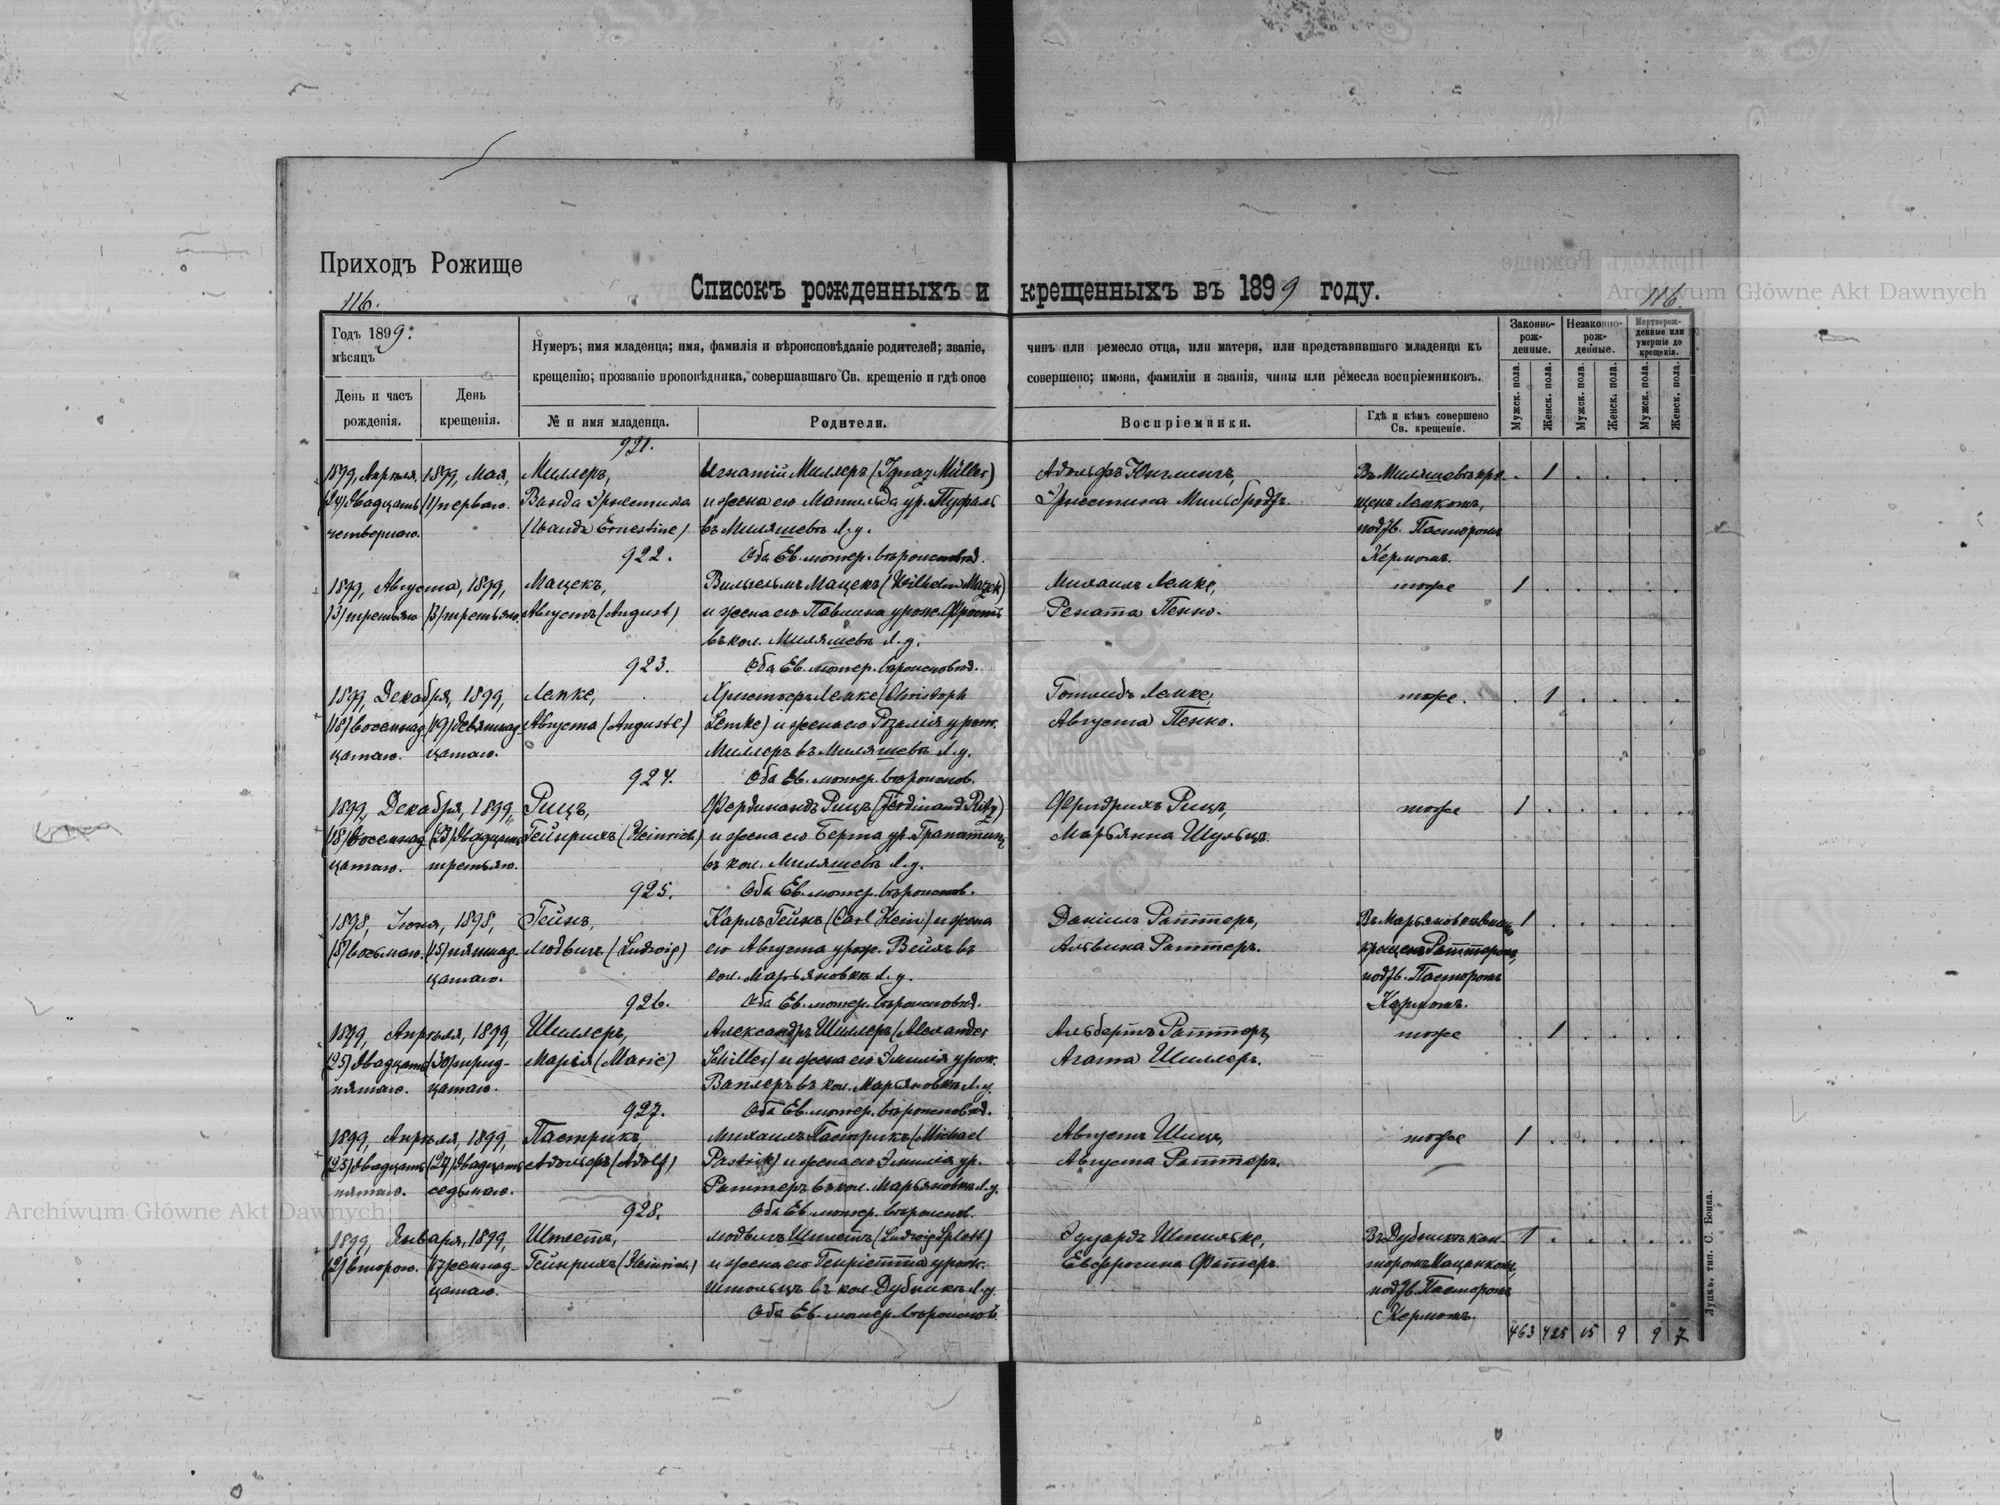 Приходъ Рожище
116.
116.
Списокъ рожденныхъ и крещенныхъ въ 1899 году.
Archiwum Główne Akt Dawnych
Годъ 1899:
мѣсяцъ
День и часъ рожденія.
День крещенія.
Нумеръ; имя младенца; имя, фамилія и вѣроисповѣданіе родителей; званіе, чинъ или ремесло отца, или матери, или представившаго младенца къ
крещенію; прозваніе проповѣдника, совершавшаго Св. крещеніе и гдѣ оное совершено; имена, фамиліи и званія, чины или ремесла воспріемниковъ.
№ и имя младенца.
Родители.
Воспріемники.
Гдѣ и кѣмъ совершено Св. крещеніе.
Законно-рож-денные.
Незаконно-рож-денные.
Мертворож-денные или умершіе до крещенія.
Мужск. пола.
Женск. пола.
Мужск. пола.
Женск. пола.
Мужск. пола.
Женск. пола.
921.
1899, Апрѣля, 1899, Мая, Миллеръ, Игнатій Миллеръ (Ignaz Müller) Адольфъ 1
(24) двадцать (1) перваго. Ванда Эрнестина и жена его Матильда ур. Эрнестина Мильбродъ.
четвертаго. (Wanda Ernestine) въ Миляшевѣ Л. у. подтв. Пасторомъ
922. Оба Ев. лютер. вѣроисповѣд. Кермомъ.
1899, Августа, 1899, Мацекъ, Вильгельмъ Мацекъ (Wilhelm Macek) Михаилъ Лемке, тоже 1
(3) третьяго (3) третьяго. Августъ (August) и жена его Павлина урож. Рената Пенно.
въ кол. Миляшевѣ Л. у.
923. Оба Ев. лютер. вѣроисповѣд.
1899, Декабря, 1899, Лемке, Христофъ Лемке (Christoph Готлибъ Лемке, тоже. 1
(18) восемнад- (19) девятнад- Августа (Auguste) Lemke) и жена его Розалія урож. Августа Пенно.
цатаго. цатаго. Миллеръ въ Миляшевѣ Л. у.
924. Оба Ев. лютер. вѣроиспов.
1899, Декабря, 1899, Рицъ, Фердинандъ Рицъ (Ferdinand Ritz) Фридрихъ Рицъ, тоже 1
(18) восемнад- (23) двадцать Гейнрихъ (Heinrich) и жена его Берта ур. Марьянна Шульцъ.
цатаго. третьяго. въ кол. Миляшевѣ Л. у.
925. Оба Ев. лютер. вѣроиспов.
1898, Іюня, 1898, Гейнъ, Карлъ Гейнъ (Carl Hein) и жена Даніилъ Раттеръ, 1
(8) восьмаго. (15) пятнад- Людвигъ (Ludwig) его Августа урож. Вейхъ въ Альвина Раттеръ. крещенъ Раттеромъ,
цатаго. кол. Марьяновкѣ Л. у. подтв. Пасторомъ
926. Оба Ев. лютер. вѣроисповѣд. Кермомъ.
1899, Апрѣля, 1899, Шиллеръ, Александръ Шиллеръ (Alexander Альбертъ Раттеръ, тоже 1
(25) двадцать (30) трид- Марія (Marie) Schiller) и жена его Эмилія урож. Агата Шиллеръ.
пятаго. цатаго. Ваплеръ въ кол. Марьяновкѣ Л. у.
927. Оба Ев. лютер. вѣроисповѣд.
1899, Апрѣля, 1899, Пастрикъ, Михаилъ Пастрикъ (Michael Августъ Шицъ, тоже 1
(25) двадцать (27) двадцать Адольфъ (Adolf) Pastrik) и жена его Эмилія ур. Августа Раттеръ.
пятаго. седьмаго. Раттеръ въ кол. Марьяновкѣ Л. у.
928. Оба Ев. лютер. вѣроиспов.
1899, Января, 1899, Шплеттъ, Людвигъ Шплеттъ (Ludwig Splett) Эдуардъ Штильке, Въ Дубникѣ кан- 1
(2) второго. (17) семнад- Гейнрихъ (Heinrich) и жена его Генріетта урож. Евфросина Фаттеръ.
цатаго. Штольцъ въ кол. Дубникѣ Л. у. подтв. Пасторомъ
Оба Ев. лютер. вѣроиспов. Кермомъ.
463 425 15 9 9 7
Луцкъ, тип. С. Бонка.
Archiwum Główne Akt Dawnych